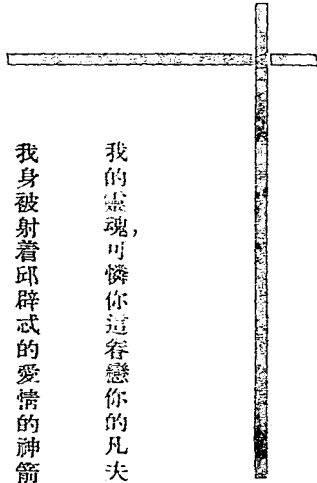 我的靈魂，可憐你這眷戀你的凡夫
我身被射着邱辟忒的愛情的神箭